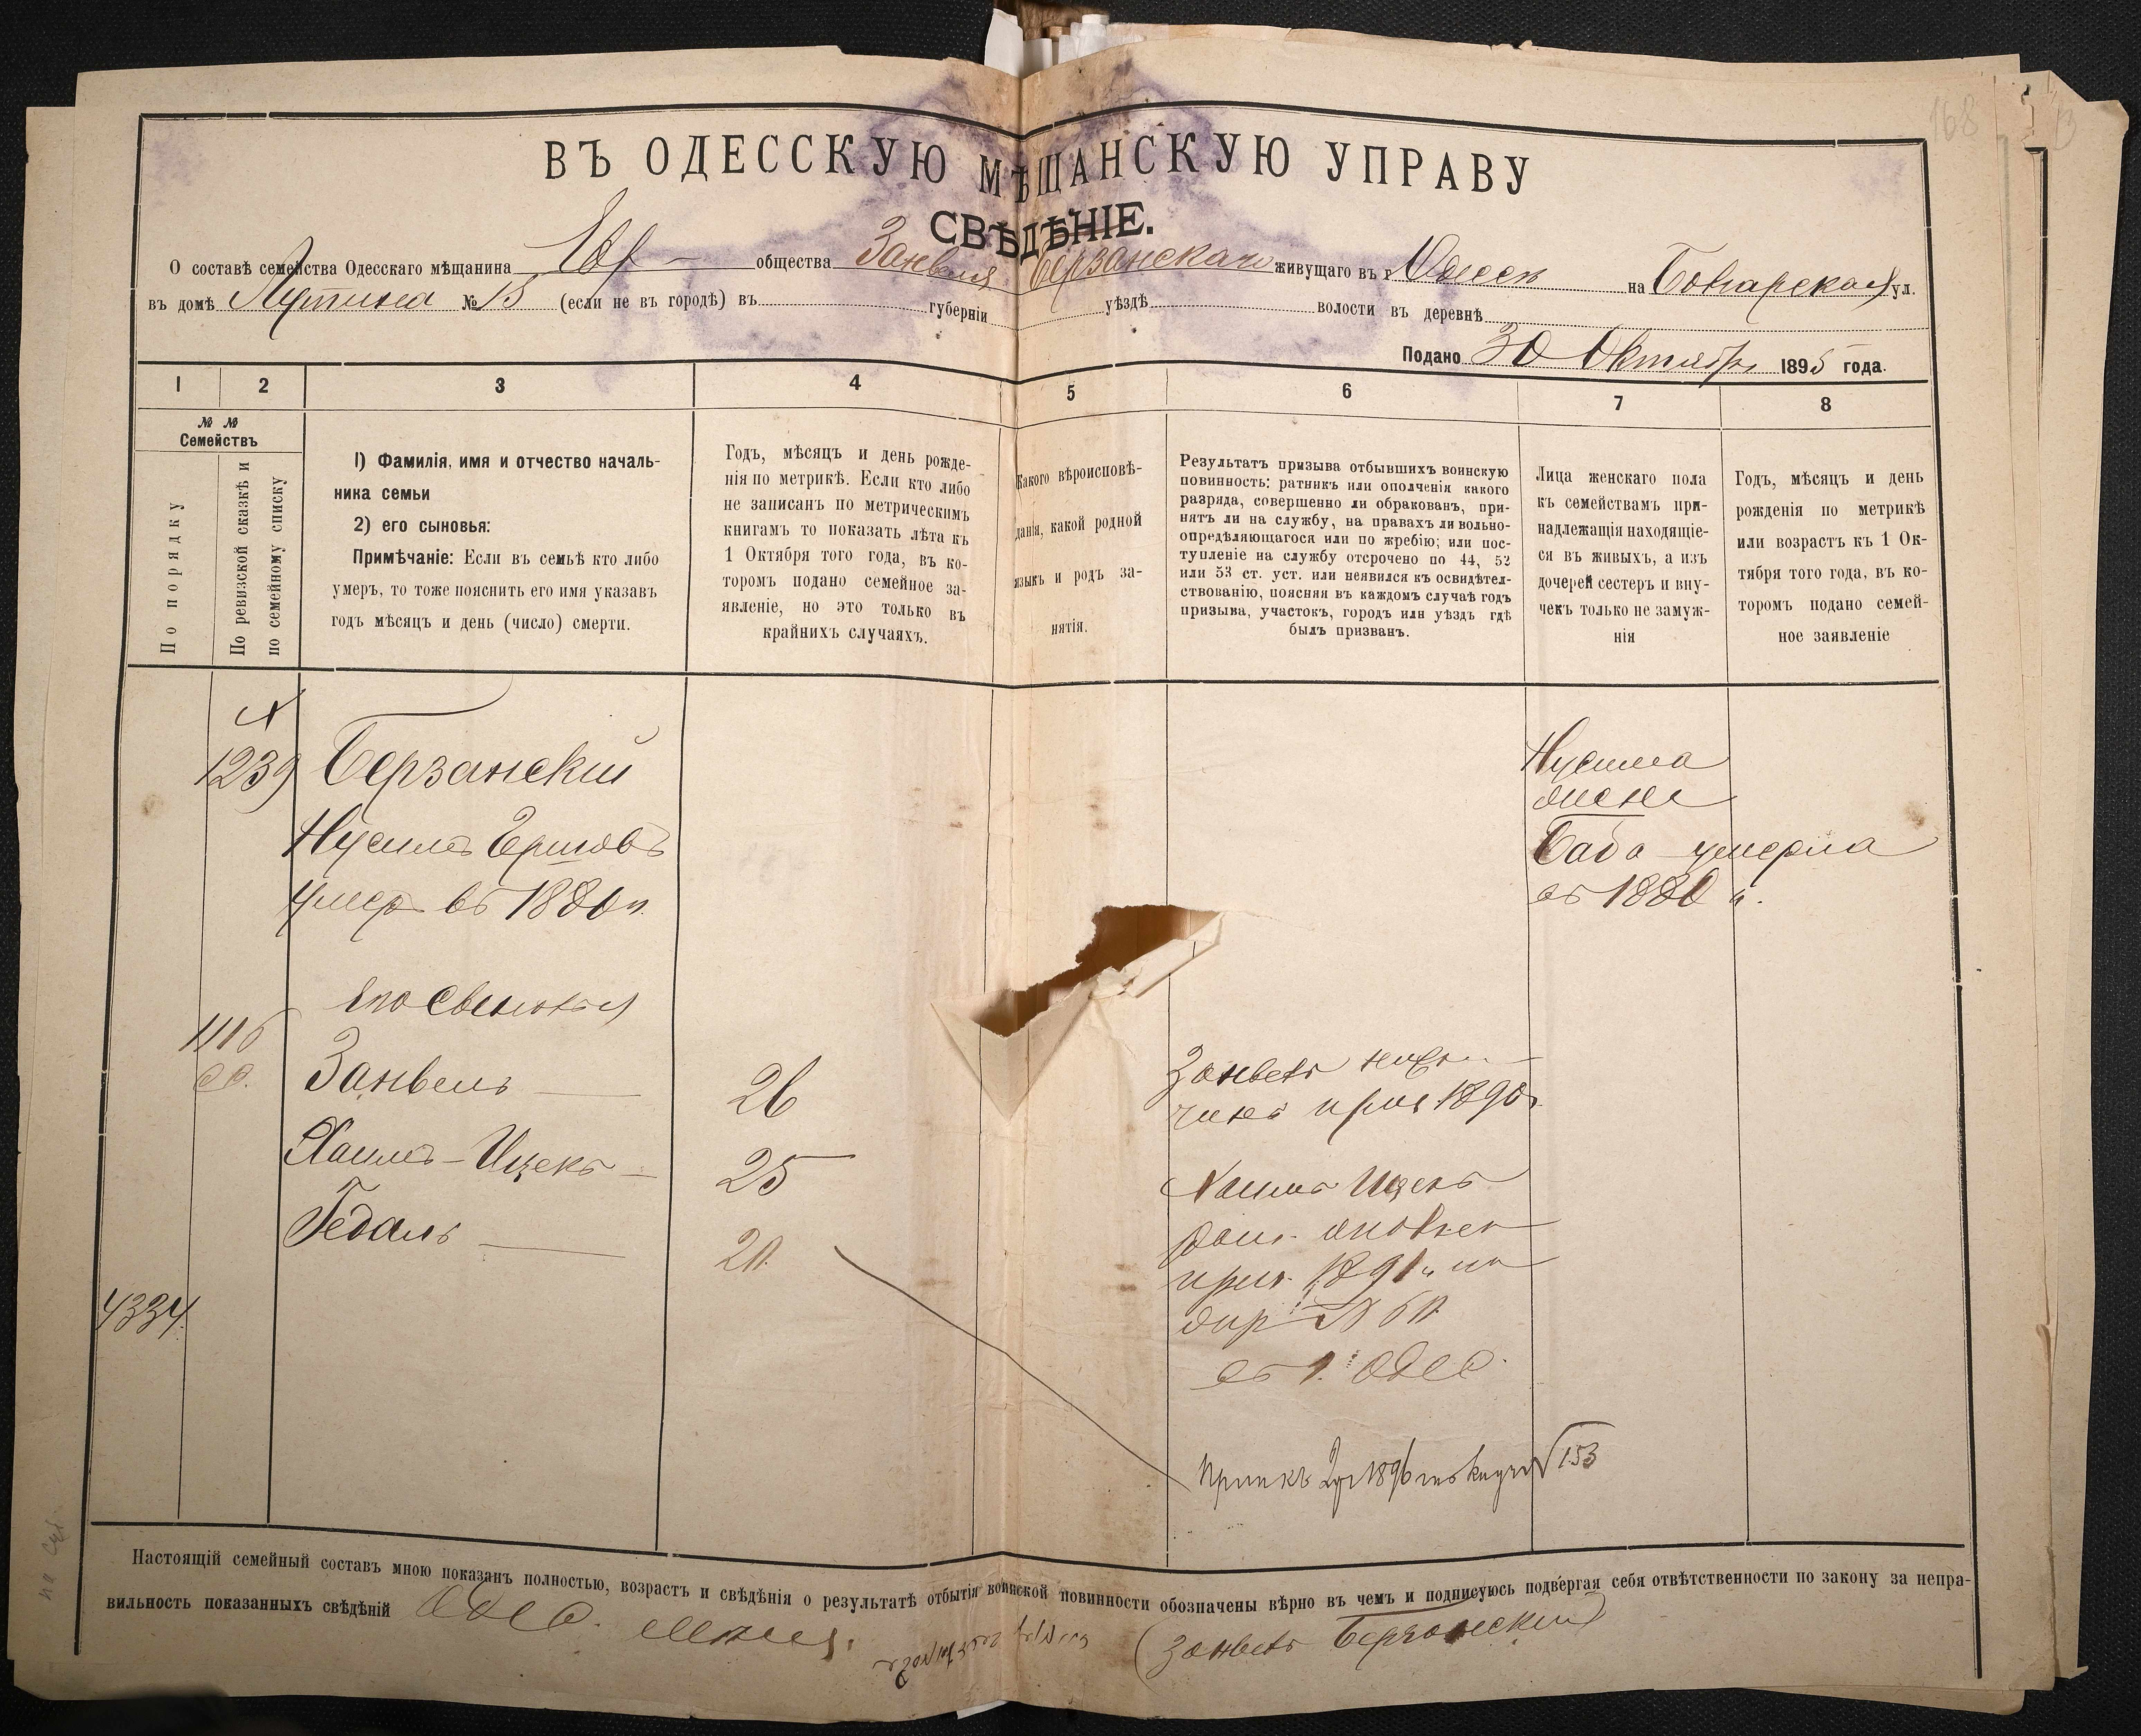 168
ВЪ ОДЕССКУЮ МѢЩАНСКУЮ УПРАВУ
СВѢДѢНІЕ.
О составѣ семейства Одесскаго мѣщанина Евр общества Занвеля Берзанскаго живущаго въ г Одессѣ на Болгарской ул.
въ домѣ № 13 (если не въ городѣ) въ губерніи уѣздѣ волости въ деревнѣ
Подано 30 Октября 1895 года.
1 2 3 4 5 6 7 8
№ №
Семействъ
По порядку
По ревизской сказкѣ и
по семейному списку
1) Фамилія, имя и отчество началь-
ника семьи
2) его сыновья:
Примѣчаніе: Если въ семьѣ кто либо
умеръ, то тоже пояснить его имя указавъ
годъ мѣсяцъ и день (число) смерти.
Годъ, мѣсяцъ и день рожде-
нія по метрикѣ. Если кто либо
не записанъ по метрическимъ
книгамъ то показать лѣта къ
1 Октября того года, въ ко-
торомъ подано семейное за-
явленіе, но это только въ
крайнихъ случаяхъ.
Какого вѣроисповѣ-
данія, какой родной
языкъ и родъ за-
нятія.
Результатъ призыва отбывшихъ воинскую
повинность: ратникъ или ополченія какого
разряда, совершенно ли обракованъ, при-
нятъ ли на службу, на правахъ ли вольно-
опредѣляющагося или по жребію; или пос-
тупленіе на службу отсрочено по 44, 52
или 53 ст. уст. или неявился къ освидѣтел-
ствованію, поясняя въ каждомъ случаѣ годъ
призыва, участокъ, городъ или уѣздъ гдѣ
былъ призванъ.
Лица женскаго пола
къ семействамъ при-
надлежащія находящіе-
ся въ живыхъ, а изъ
дочерей сестеръ и вну-
чекъ только не замуж-
нія
Годъ, мѣсяцъ и день
рожденія по метрикѣ
или возрастъ къ 1 Ок-
тября того года, въ ко-
торомъ подано семей-
ное заявленіе
1239
Берзанскій
Нусимъ Ершовъ
умеръ въ 1880 г.
Его Сыновья
1116
Занвель
26
Хаимъ-Ицекъ
25
Гедаль
20
4334
Занвель
призыв 1890
Хаимъ Ицекъ
приз. 1891 г. по
жер № 60
въ г. Одес.
Нусима
жена
Баба умерла
въ 1880 г.
153
Настоящій семейный составъ мною показанъ полностью, возрастъ и свѣдѣнія о результатѣ отбытія воинской повинности обозначены вѣрно въ чемъ и подписуюсь подвергая себя отвѣтственности по закону за непра-
вильность показанныхъ свѣдѣній Одес. Мѣщ.
Занвель Берзанскій